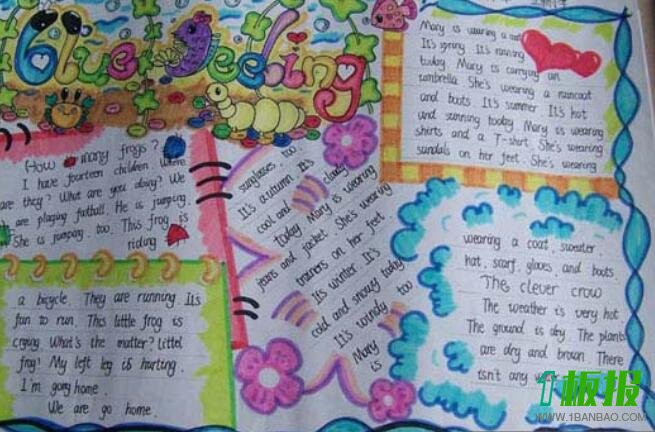 Blue Feeling
How many frogs?
I have fourteen children. Where
are they? What are you doing? We
are playing football. He is jumping.
She is jumping. too. This frog is
riding
a bicycle. They are running. It's
fun to run. This little frog is
crying. What's the matter? Littel
frog! My left leg is hurting.
I'm gong home.
We are go home.
Mary is wearing a
It's spring. It's raining
today. Mary is carrying an
umbrella. She's wearing a raincoat
and boots. It's summer. It's hot
and sunning tooday. Mary is wearing
shirts and a T-shirt. She's wearing
sandals on her feet. She's wearing
sunglasses too.
It's autumn. It's
cool and cloudy
today. Mary is wearing
jeans and jacket. She's wearing
trainers on her feet
It's winter. It's
cold and snowy today
It's windy too
Mary
is
wearing a coat, sweater
hat, scarf, gloves, and boots.
The clever crow
The weather is very hot
The ground is dry. The plants
are dry and brown. There
isn't any
1板报
WWW.1BANBAO.COM